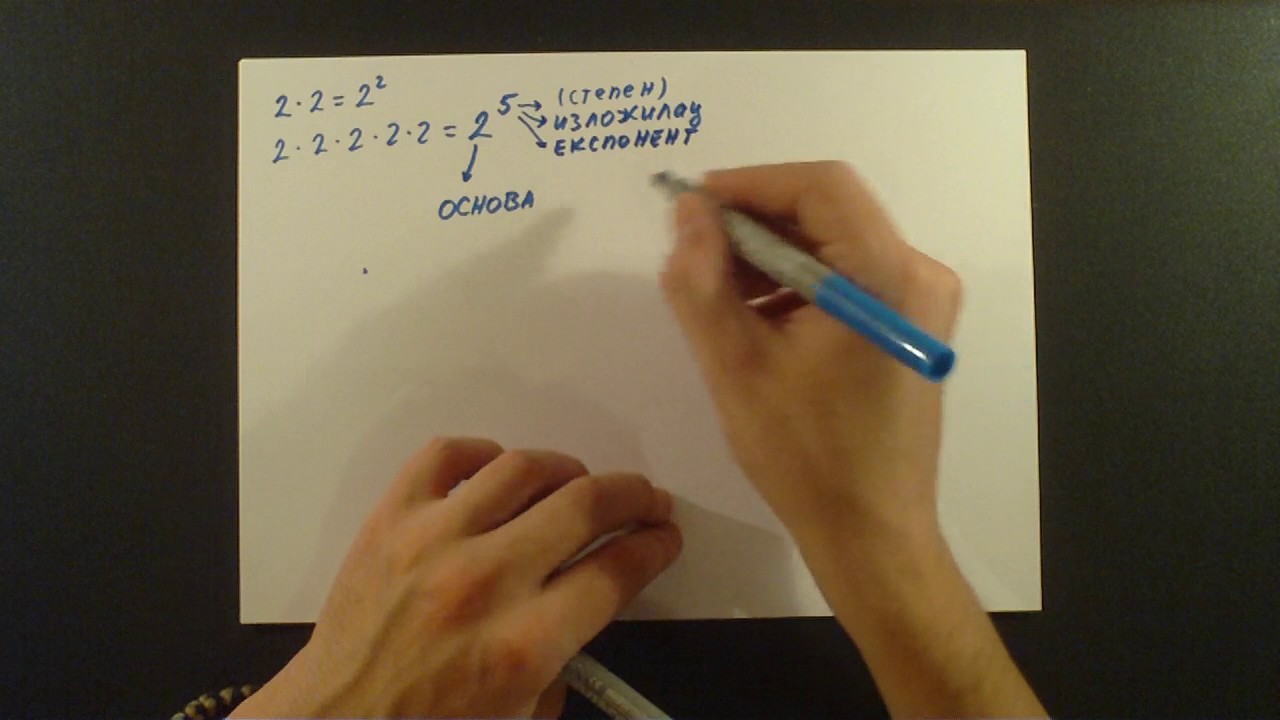 2·2=2²
2·2·2·2·2=2⁵
(степен)
изложилац
ЕКСПОНЕНТ
ОСНОВА